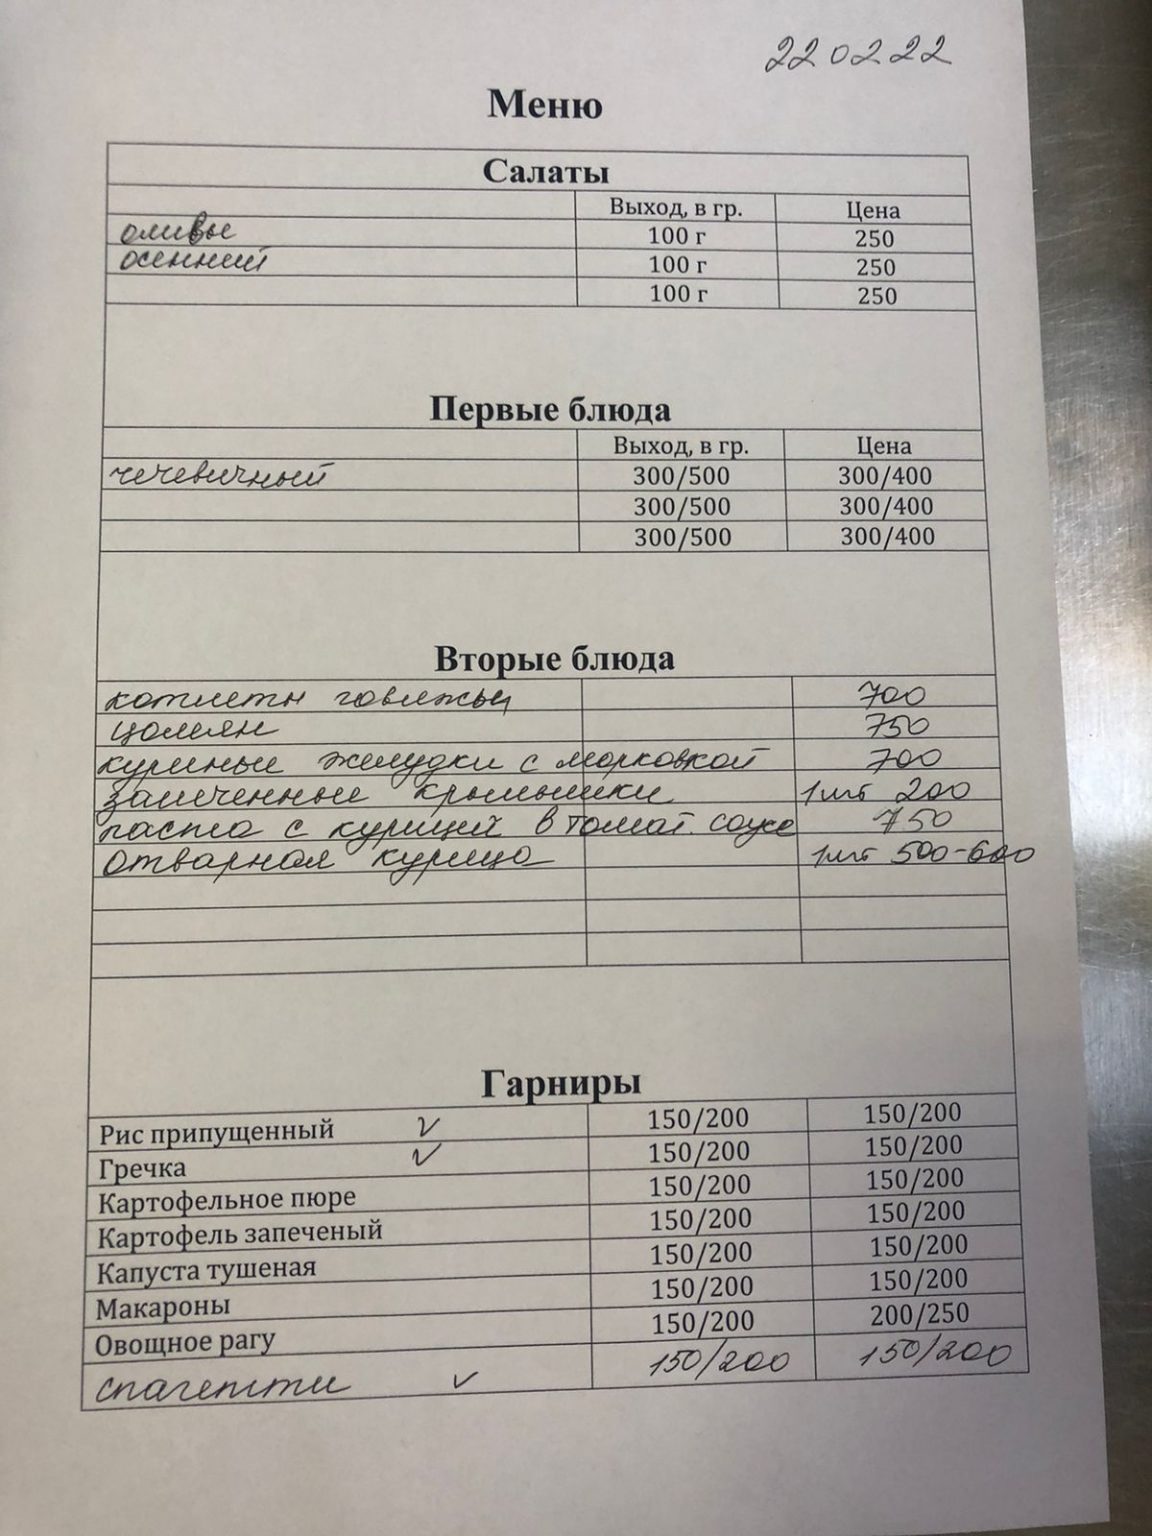 22 02 22
Меню
Салаты
Выход, в гр. Цена
оливье 100 г 250
осенний 100 г 250
100 г 250
Первые блюда
Выход, в гр. Цена
чечевичный 300/500 300/400
300/500 300/400
300/500 300/400
Вторые блюда
котлеты говяжьи 700
цомян 750
куриные желудки с морковкой 700
запеченные крылышки 1шт 200
паста с курицей в томат. соусе 750
отварная курица 1шт 500-600
Гарниры
Рис припущенный ✓ 150/200 150/200
Гречка ✓ 150/200 150/200
Картофельное пюре 150/200 150/200
Картофель запеченый 150/200 150/200
Капуста тушеная 150/200 150/200
Макароны 150/200 150/200
Овощное рагу 150/200 200/250
спагетти ✓ 150/200 150/200